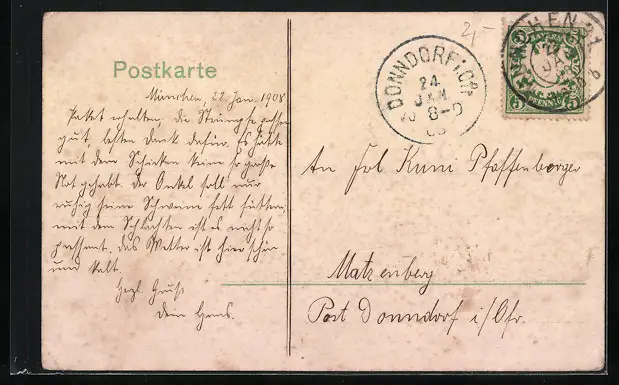 2,-
Postkarte
München, 22. Jan. 1908
Paket erhalten, die Steinige passen
gut, besten Dank dafür. Es hätte
mit dem Schicken keine so große
Not gehabt. Der Onkel soll nur
ruhig seine Schweine fett füttern,
mit dem Schlachten ist es nicht so
passant, das Wetter ist hier schön
und kalt.
Herzl. Gruß
Dein Hans.
DONNDORF i. Ofr.
24
JAN
8-9
08
MÜNCHEN 21
22
JAN
BAYERN
5
PFENNIG
An Frl. Kuni Pfaffenberger
Matzenberg
Post Donndorf i/Ofr.